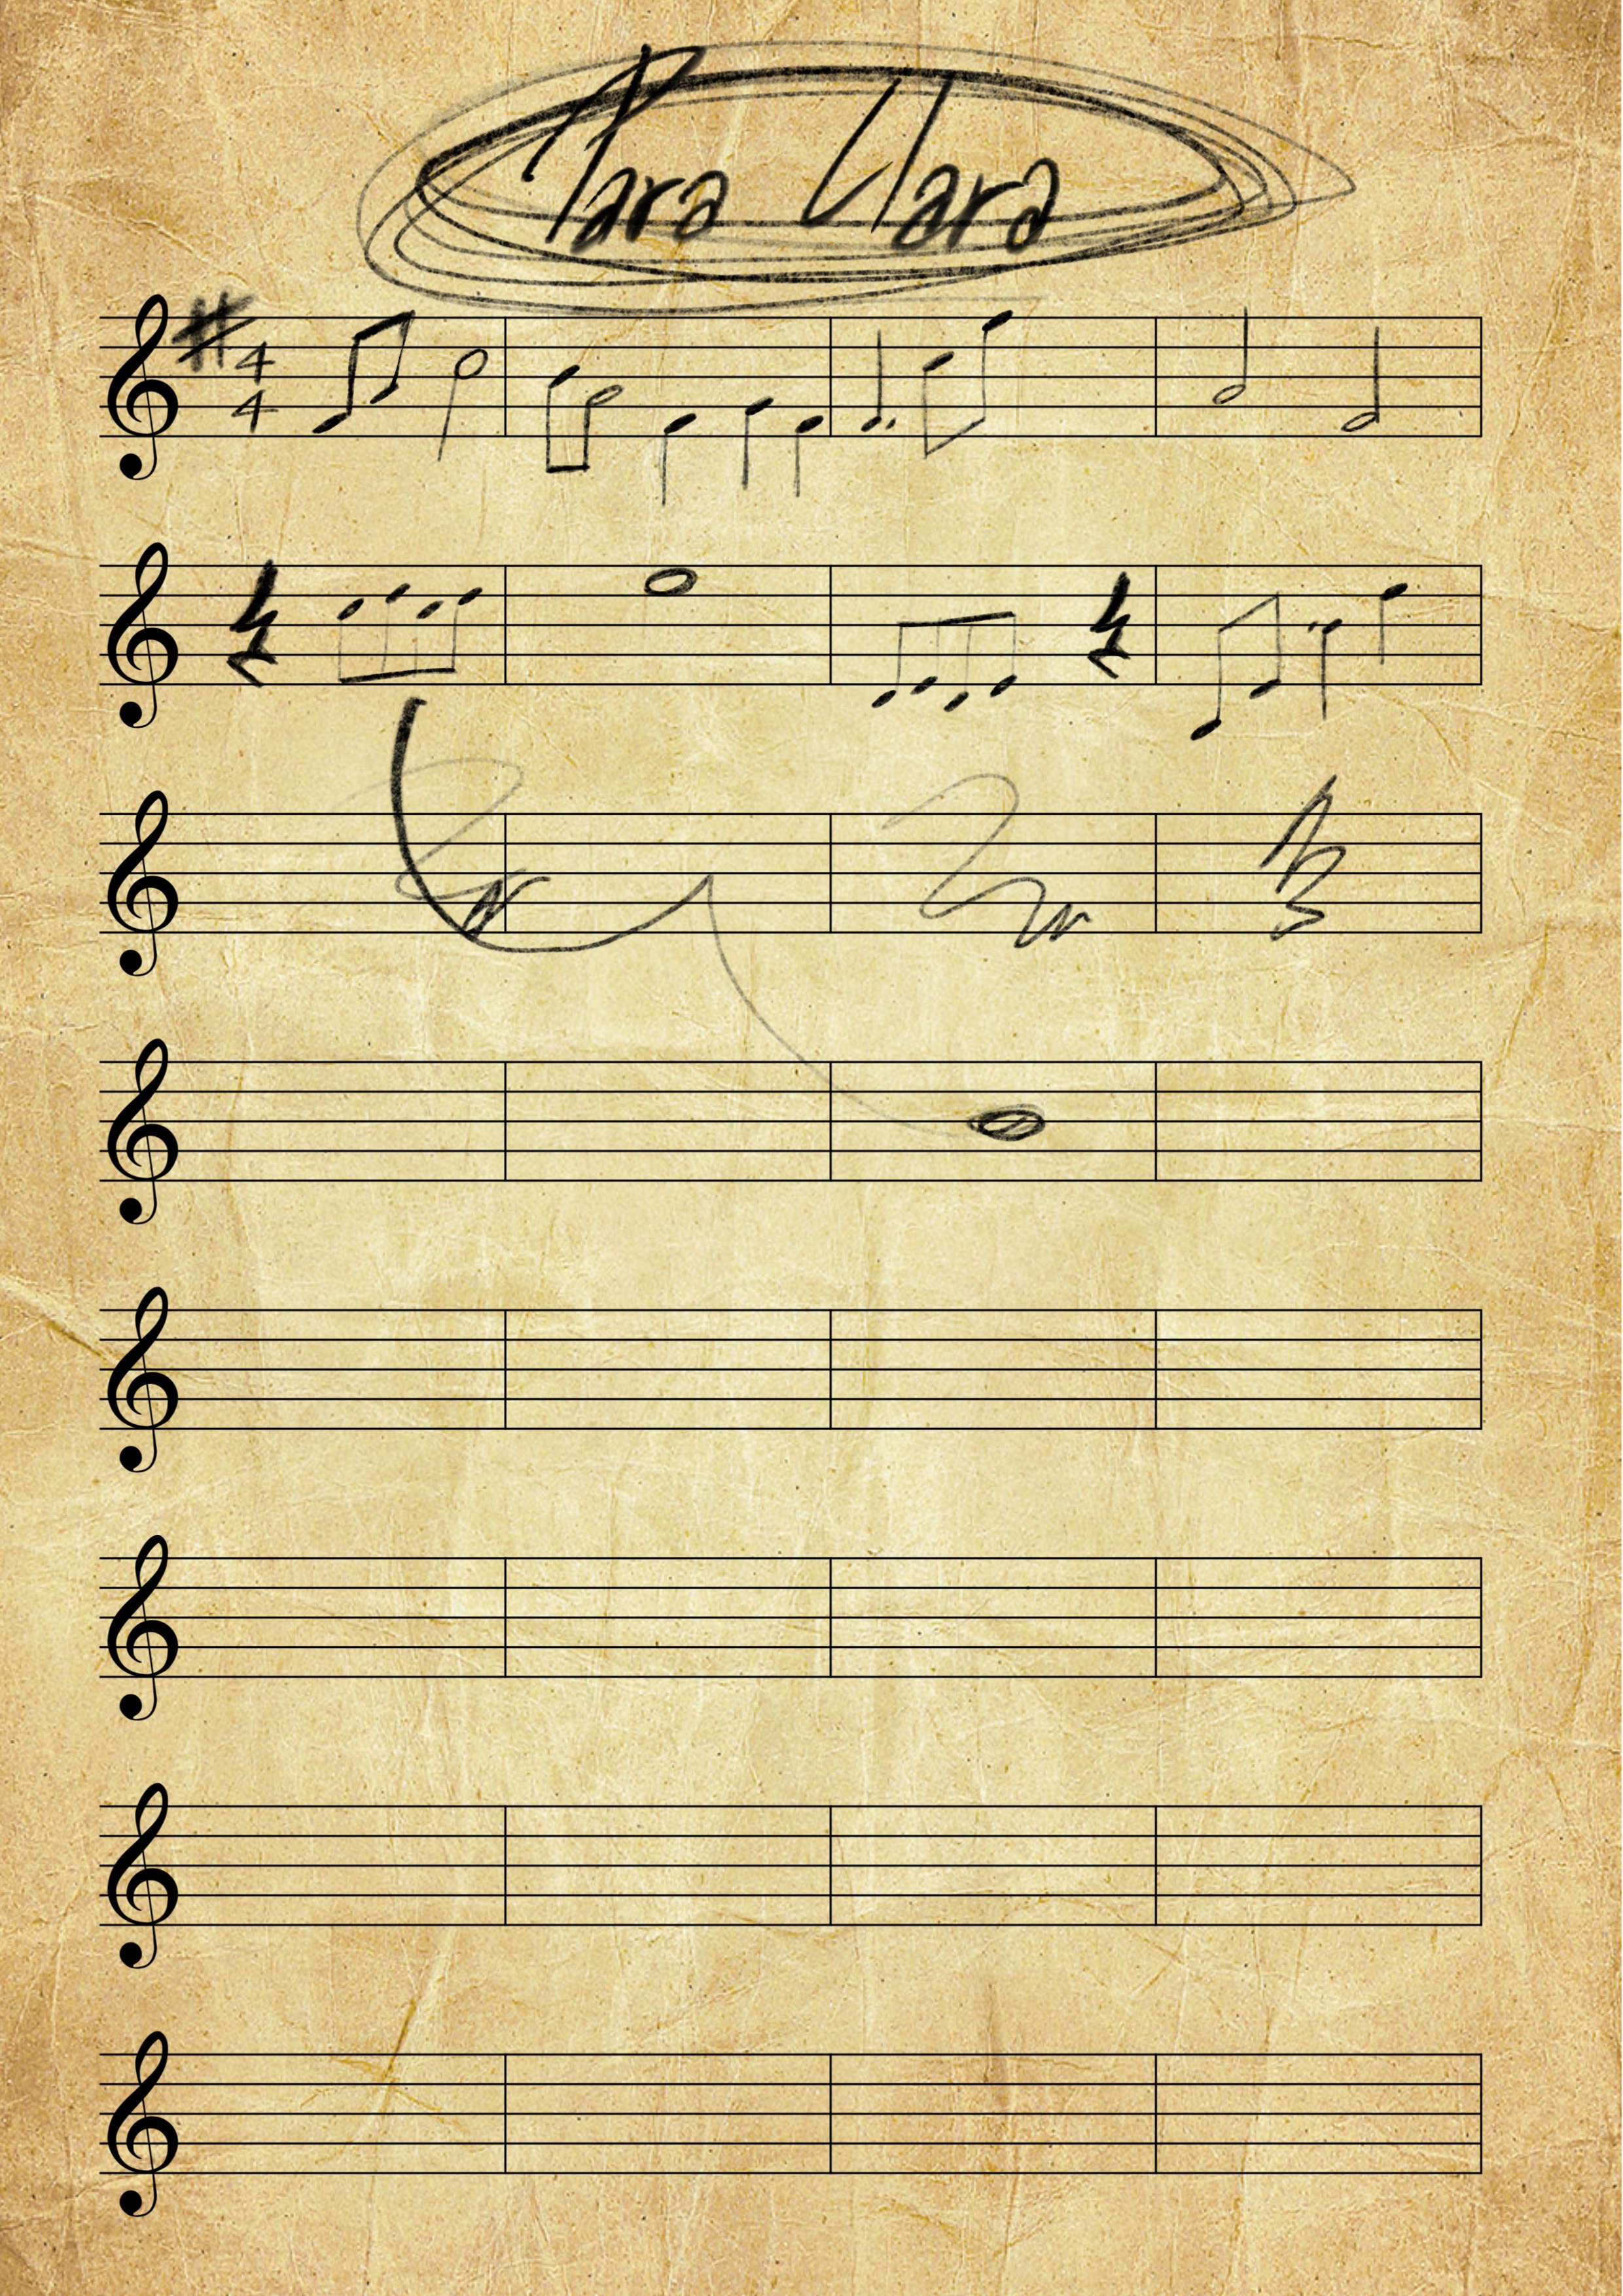 Para Clara
4
4